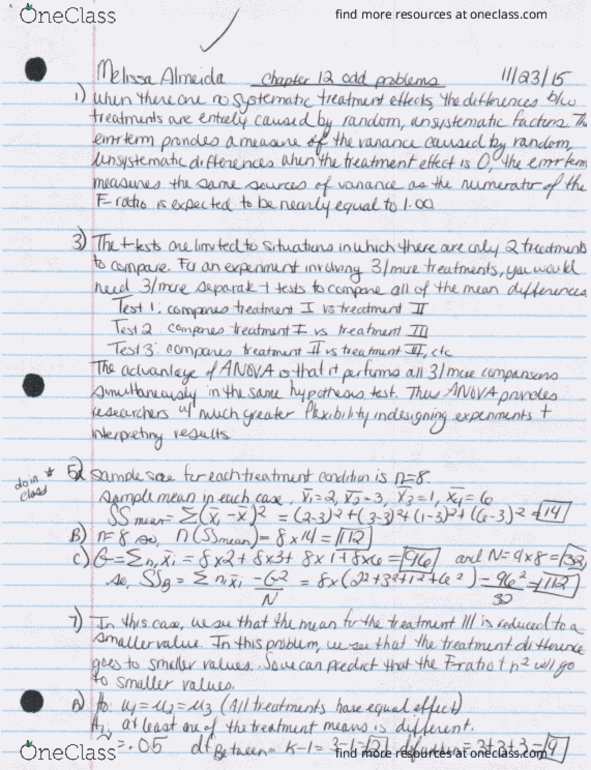 OneClass find more resources at oneclass.com
Melissa Almeida chapter 12 odd problems 11/23/15
1) When there are no systematic treatment effects, the differences b/w
treatments are entirely caused by random, unsystematic factors. The
error term provides a measure of the variance caused by random,
unsystematic differences when the treatment effect is 0, the error term
measures the same sources of variance as the numerator of the
F-ratio is expected to be nearly equal to 1.00
3) The t-tests are limited to situations in which there are only 2 treatments
to compare. For an experiment involving 3/more treatments, you would
need 3/more separate t tests to compare all of the mean differences
Test 1: compares treatment I vs treatment II
Test 2: compares treatment I vs treatment III
Test 3: compares treatment II vs treatment III, etc
The advantage of ANOVA is that it performs all 3/more comparisons
simultaneously in the same hypothesis test. Thus ANOVA provides
researchers w/ much greater flexibility in designing experiments +
interpreting results.
do in class * 5a) Sample size for each treatment condition is n=8.
Sample mean in each case, x̄₁=2, x̄₂=3, x̄₃=1, x̄₄=6
SSmean = Σ(x̄ᵢ-x̄)² = (2-3)²+(3-3)²+(1-3)²+(6-3)² = 14
B) n=8 so, n(SSmean) = 8x14 = 112
C) G=Σnᵢx̄ᵢ = 8x2+8x3+8x1+8x6 = 96 and N=4x8=32
so, SSB = Σnx̄ᵢ - G²/N = 8x(2²+3²+1²+6²) - 96²/32 = 112
7) In this case, we see that the mean for the treatment III is reduced to a
smaller value. In this problem, we see that the treatment difference
goes to smaller values. So we can predict that the F-ratio + n² will go
to smaller values.
B) H₀: u₁=u₂=u₃ (All treatments have equal effect)
H₁: at least one of the treatment means is different.
=.05 df Between = K-1 = 3-1 = 2 = 3+3+3 = 9
OneClass find more resources at oneclass.com